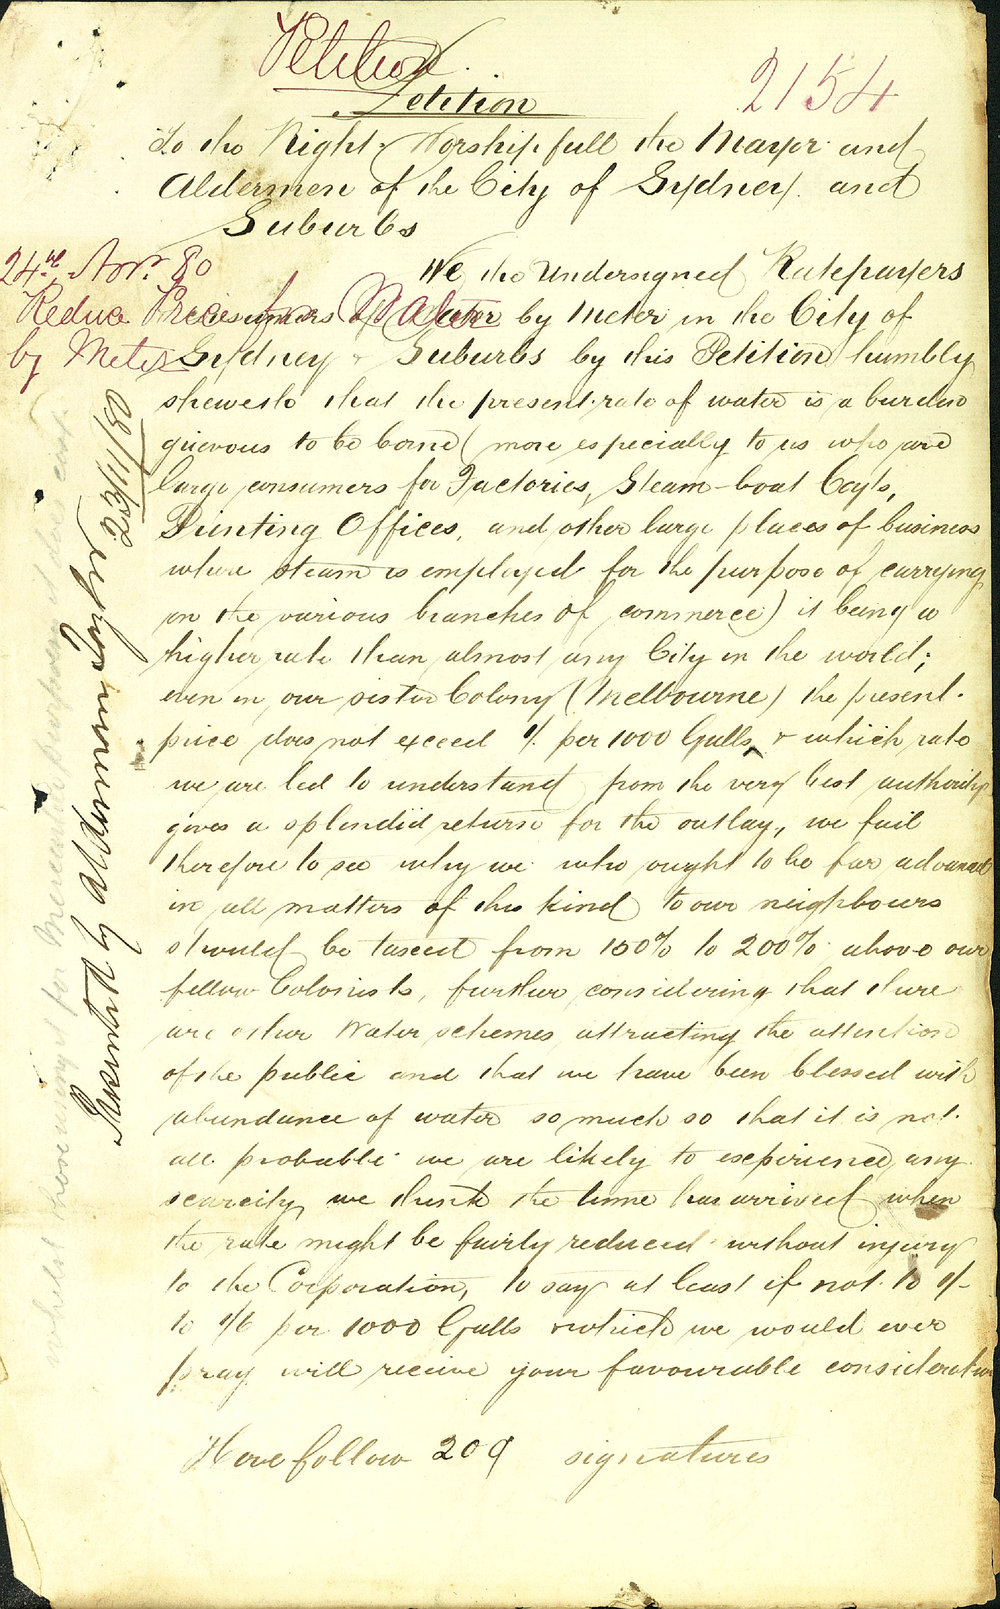 Petition
2154
Petition
To the Right Worshipfull the Mayor and
Aldermen of the City of Sydney and
Suburbs
24th Novr 80
Reduce Price for Water
by Meter
We the Undersigned Ratepayers
consumers of Water by Meter in the City of
Sydney & Suburbs by this Petition humbly
sheweth that the present rate of water is a burden
grievous to be borne (more especially to us who are
large consumers for Factories, Steam-boat Coys,
Printing Offices, and other large places of business
where steam is employed for the purpose of carrying
on the various branches of commerce) it being a
higher rate than almost any City in the world;
even in our sister Colony (Melbourne) the present
price does not exceed 1/- per 1000 Galls, & which rate
we are led to understand from the very best authority
gives a splendid return for the outlay, we fail
therefore to see why we who ought to be far advanced
in all matters of this kind to our neighbours
should be taxed from 150% to 200% above our
fellow Colonists, further considering that there
are other Water schemes attracting the attention
of the public and that we have been blessed with
abundance of water so much so that it is not
all probable we are likely to experience any
scarcity, we think the time has arrived when
the rate might be fairly reduced without injury
to the Corporation, to say at least if not to 1/-
to 1/6 per 1000 Galls & which we would ever
pray will receive your favourable consideration
Here follow 209 signatures
Presented by Alderman 23/11/80